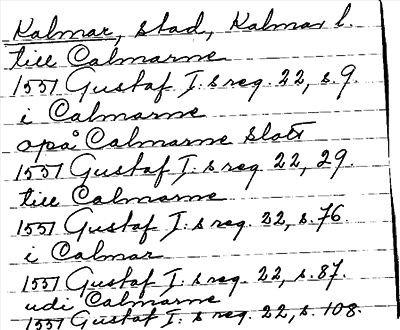 Kalmar, stad, Kalmar l.
till Calmarne
1551 Gustaf I:s reg. 22, s. 9.
i Calmarne
opå Calmarne slott
1551 Gustaf I:s reg. 22, 29.
till Calmarne
1551 Gustaf I:s reg. 22, s. 76
i Calmar
1551 Gustaf I:s reg. 22, s. 87.
udi Calmarne
1551 Gustaf I:s reg. 22, s. 108.